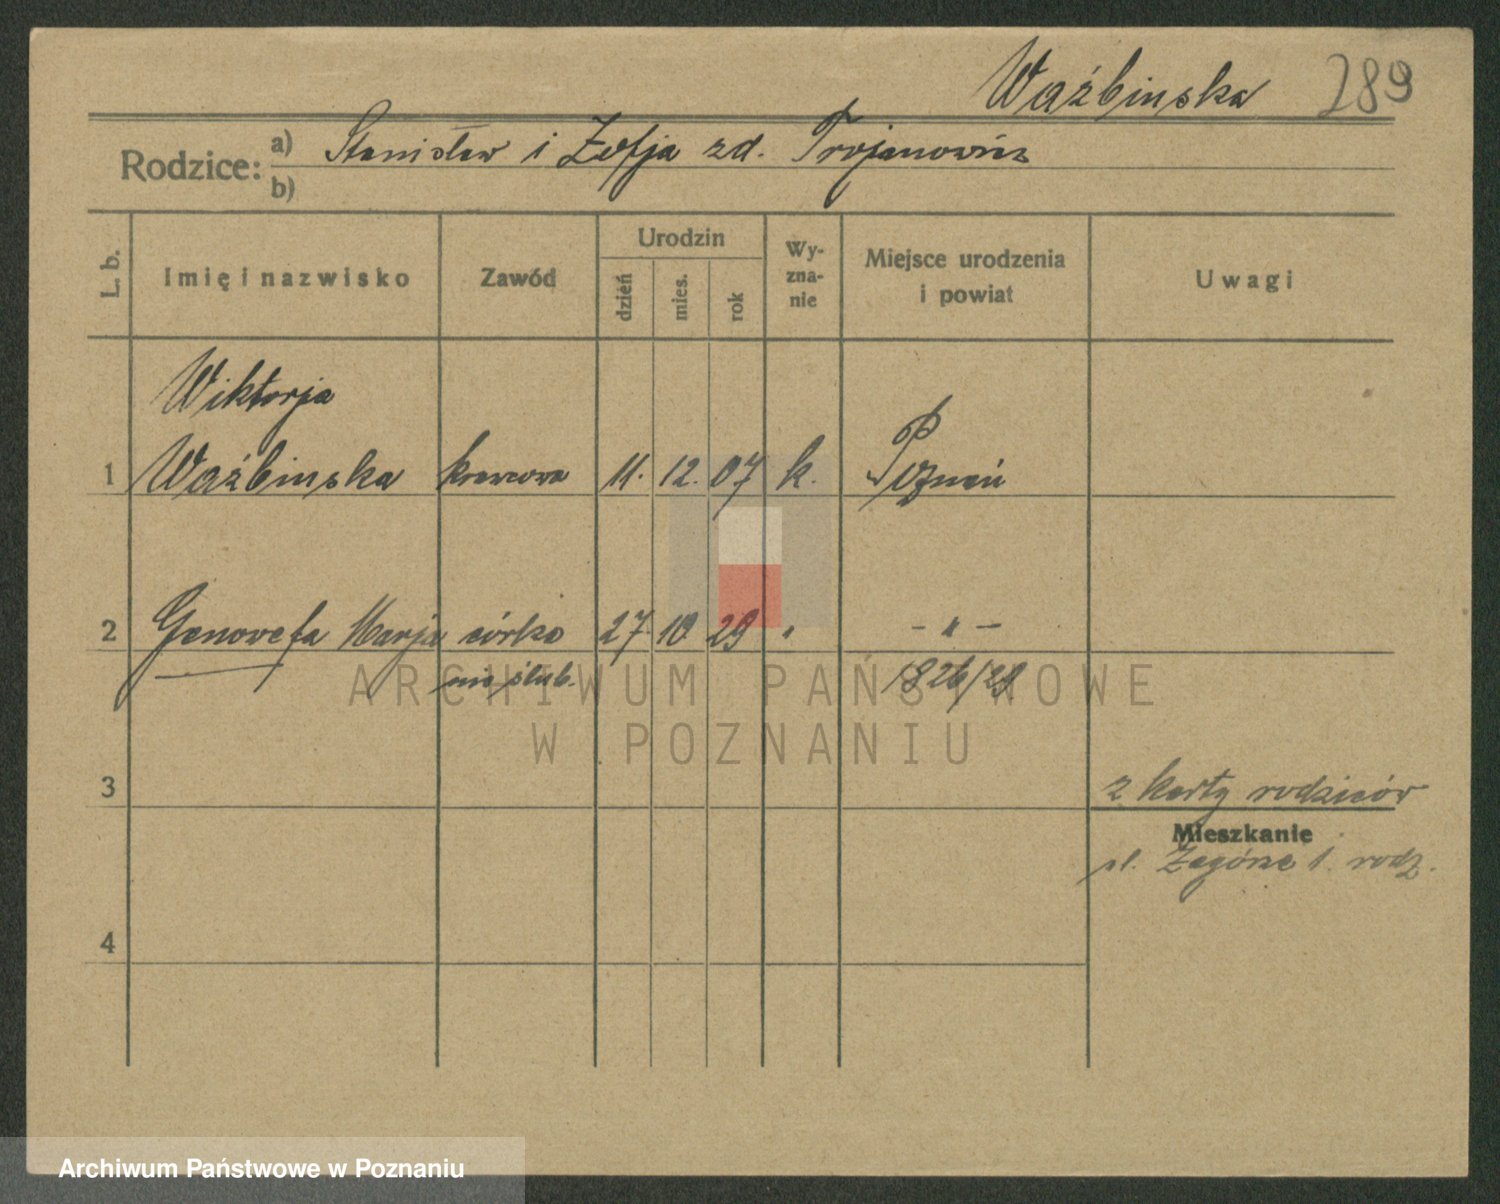 Waźbinska 289
Rodzice: a) Stanisław i Zofja zd. Trojanowicz
b)
L. b.
Imię i nazwisko
Zawód
Urodzin
dzień
mies.
rok
Wy-
zna-
nie
Miejsce urodzenia
i powiat
Uwagi
Wiktorja
1 Waźbinska krawcowa 11. 12. 07 k. Poznań
2 Genowefa Marja córka 27. 10 29 " - " -
nie ślub. 1826/29
3
z karty rodziców
Mieszkanie
pl. Zagórze 1. rodz.
4
ARCHIWUM PAŃSTWOWE
W POZNANIU
Archiwum Państwowe w Poznaniu